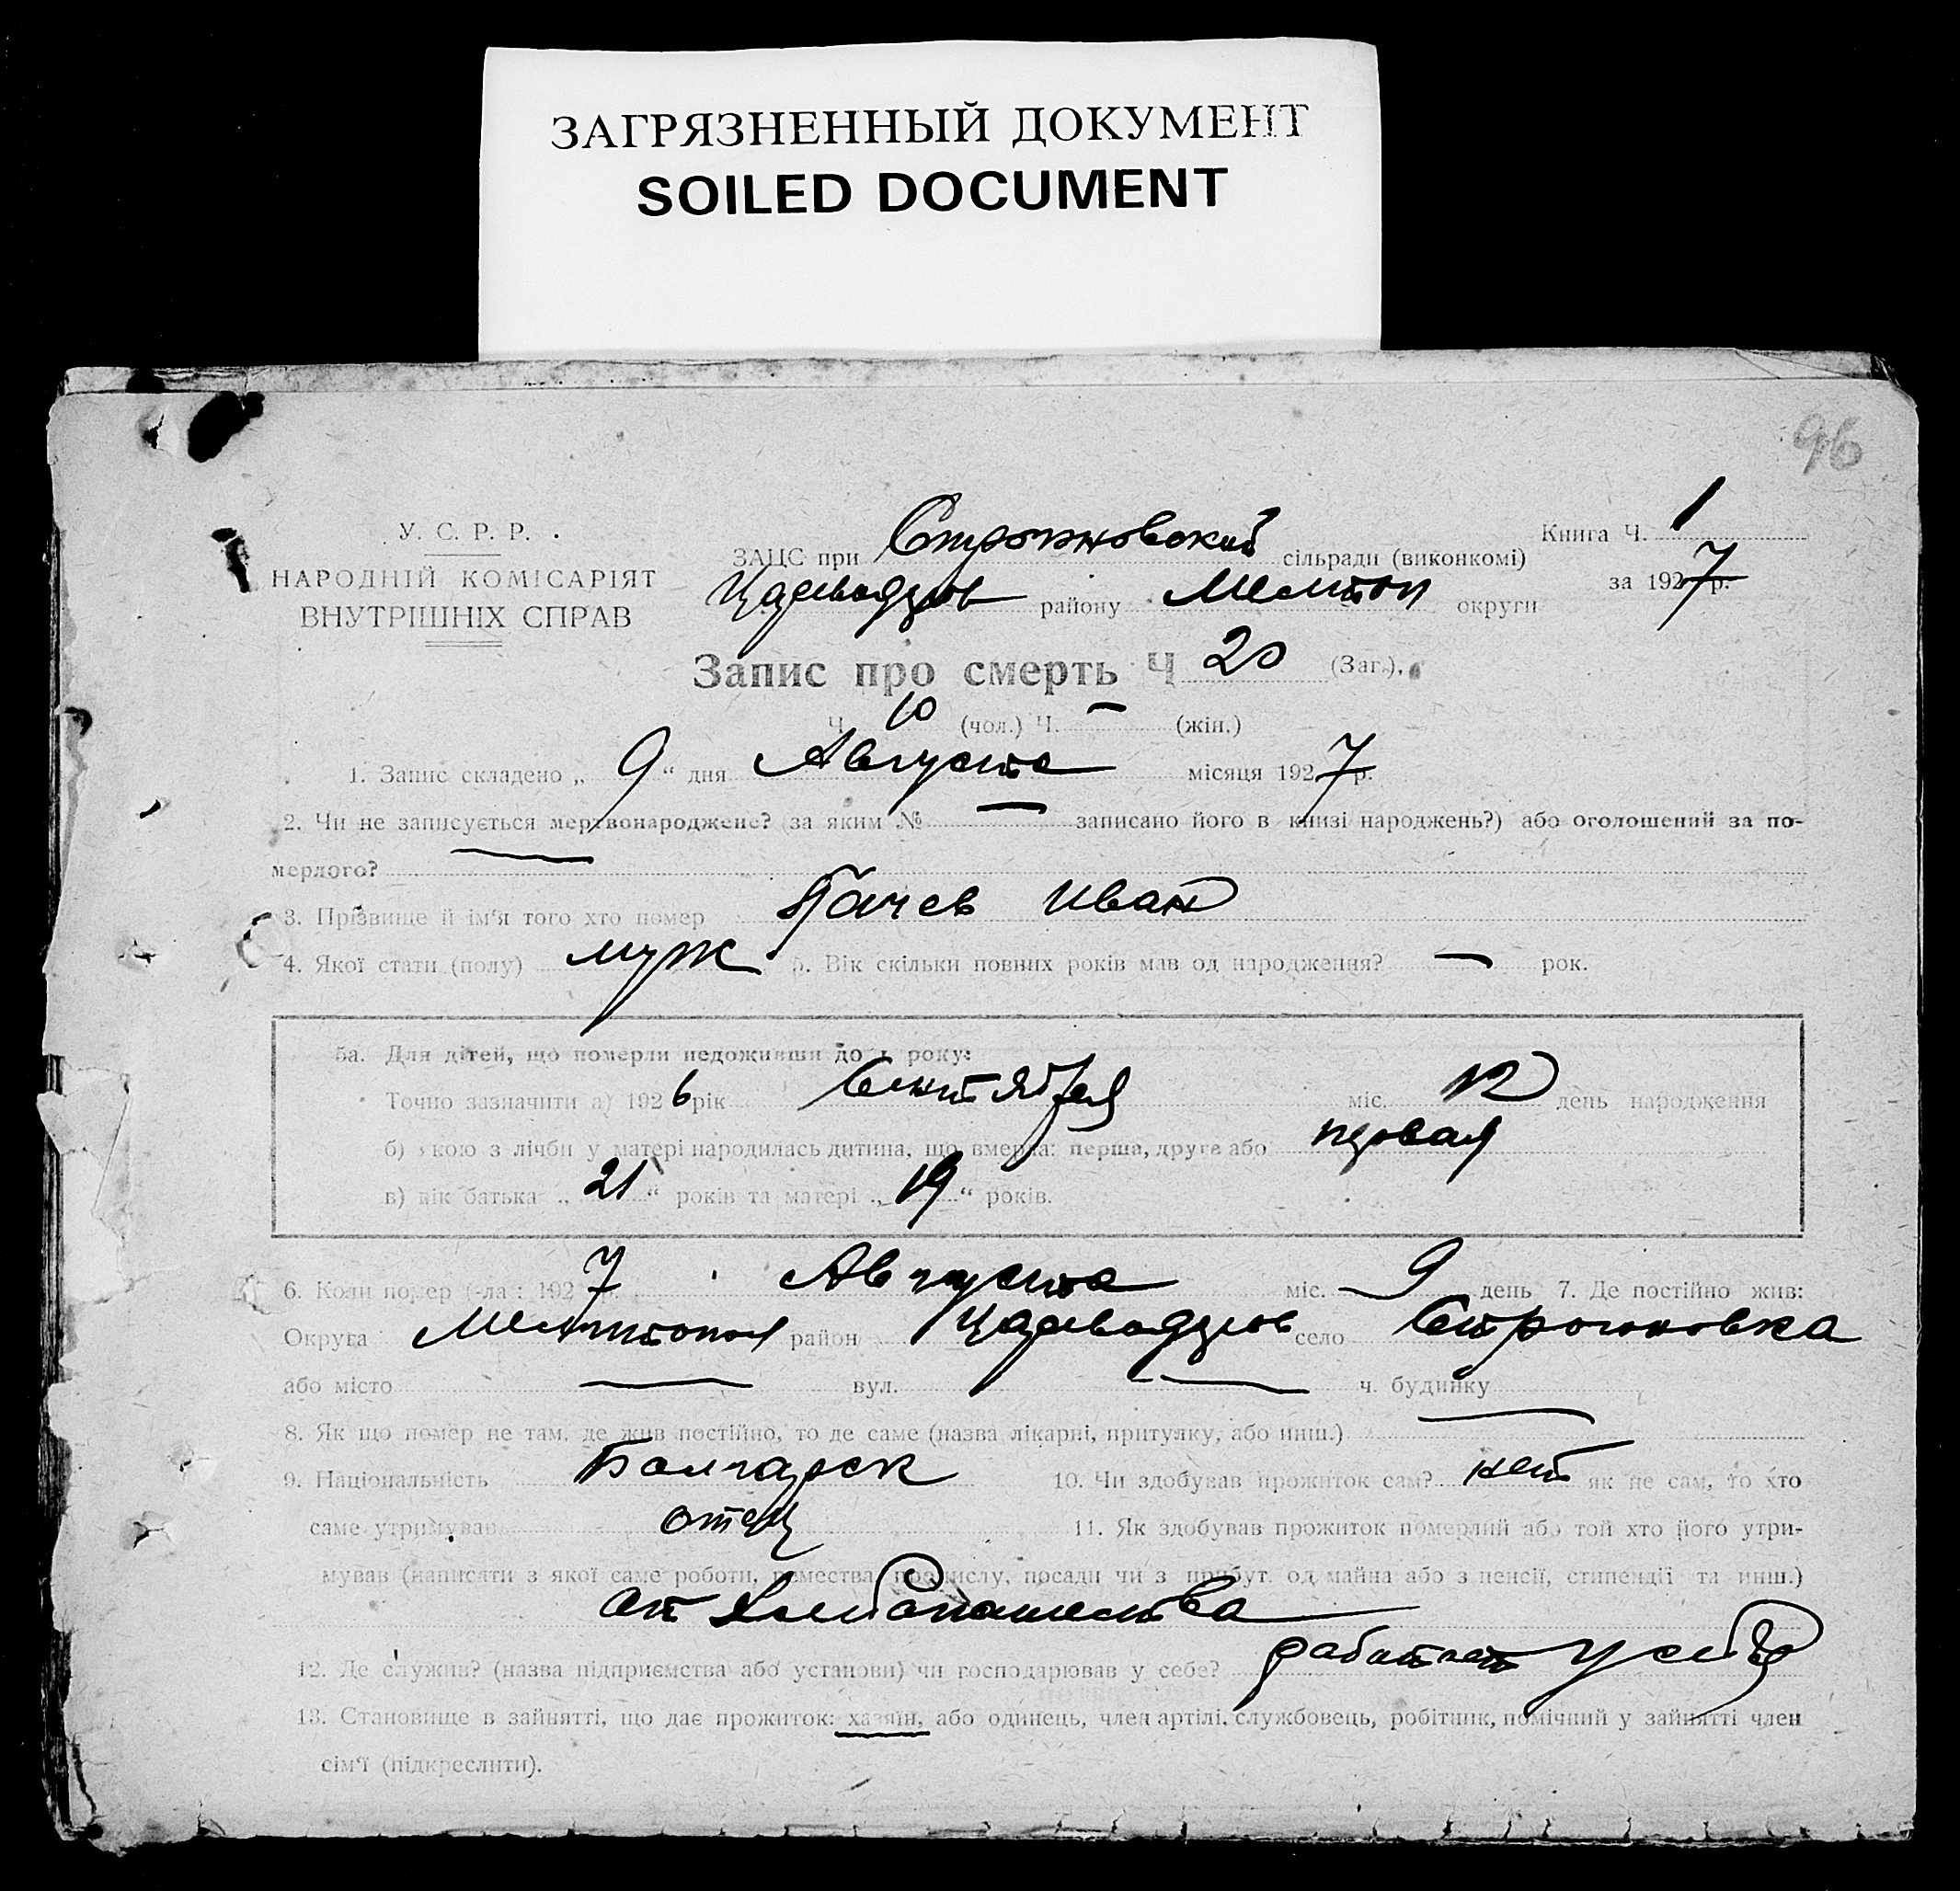 ЗАГРЯЗНЕННЫЙ ДОКУМЕНТ
SOILED DOCUMENT
96
У. С. Р. Р.
НАРОДНІЙ КОМІСАРІЯТ
ВНУТРІШНІХ СПРАВ
ЗАЦС при Строгановский сільради (виконкомі)
району Мелитоп округи
Книга Ч. 1
за 1927 р.
Запис про смерть Ч 20 (Заг.).
Ч. 10 (чол.) Ч. — (жін.)
1. Запис складено „ 9 “ дня Августа місяця 1927 р.
2. Чи не записується мертвонароджене? (за яким № — записано його в книзі народжень?) або оголошений за по-
мерлого? —
3. Прізвище й ім'я того хто помер Иван
4. Якої стати (полу) муж 5. Вік скільки повних років мав од народження? — рок.
5а. Для дітей, що померли недоживши до 1 року:
Точно зазначити а) 1926 рік Сентября міс. 12 день народження
б) якою з лічби у матері народилась дитина, що вмерла: перша, друга або первая
в) вік батька „ 21 “ років та матері „ 19 “ років.
6. Коли помер (-ла): 1927 р. Августа міс. 9 день 7. Де постійно жив:
Округа район село
або місто — вул. — ч. будинку —
8. Як що помер не там, де жив постійно, то де саме (назва лікарні, притулку, або инш.)
9. Національність Болгарск 10. Чи здобував прожиток сам? нет як не сам, то хто
саме утримував отец 11. Як здобував прожиток померлий або той хто його утри-
мував (написати з якої саме роботи, ремества, промислу, посади чи з прибут. од майна або з пенсії, стипендії та инш.)
от хлебопашества
12. Де служив? (назва підприємства або установи) чи господарював у себе? работает у себя
13. Становище в зайнятті, що дає прожиток: хазяїн, або одинець, член артілі, службовець, робітник, помічний у зайнятті член
сім'ї (підкреслити).